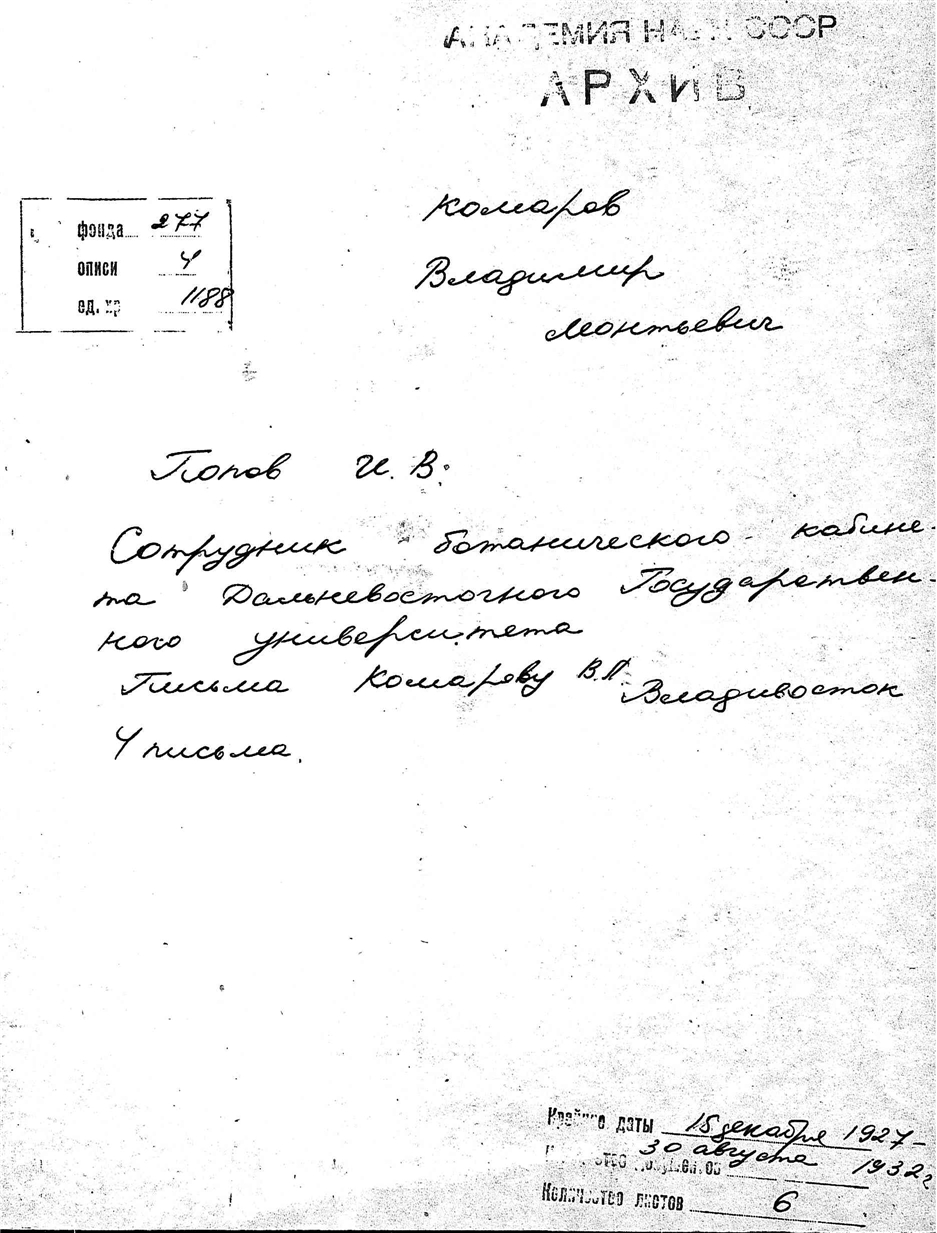 АКАДЕМИЯ НАУК СССР
АРХИВ
фонда 277
описи 4
ед. хр 1188
Комаров
Владимир
Леонтьевич
Попов И. В.
Сотрудник ботанического кабине-
та Дальневосточного Государствен-
ного университета
Письма Комарову В.Л. Владивосток
4 письма.
Крайние даты 15 декабря 1927-
30 августа 1932г
Количество листов 6